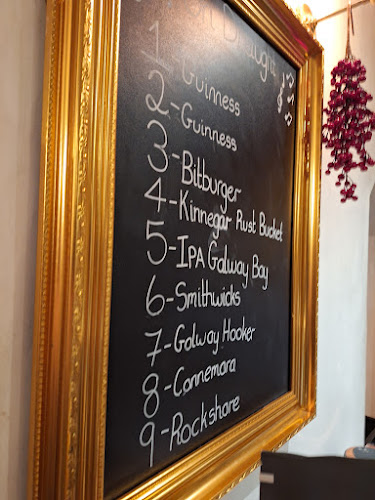 On Draught
1 - Guinness
2 - Guinness
3 - Bitburger
4 - Kinnegar Rust Bucket
5 - IPA Galway Bay
6 - Smithwicks
7 - Galway Hooker
8 - Connemara
9 - Rockshore